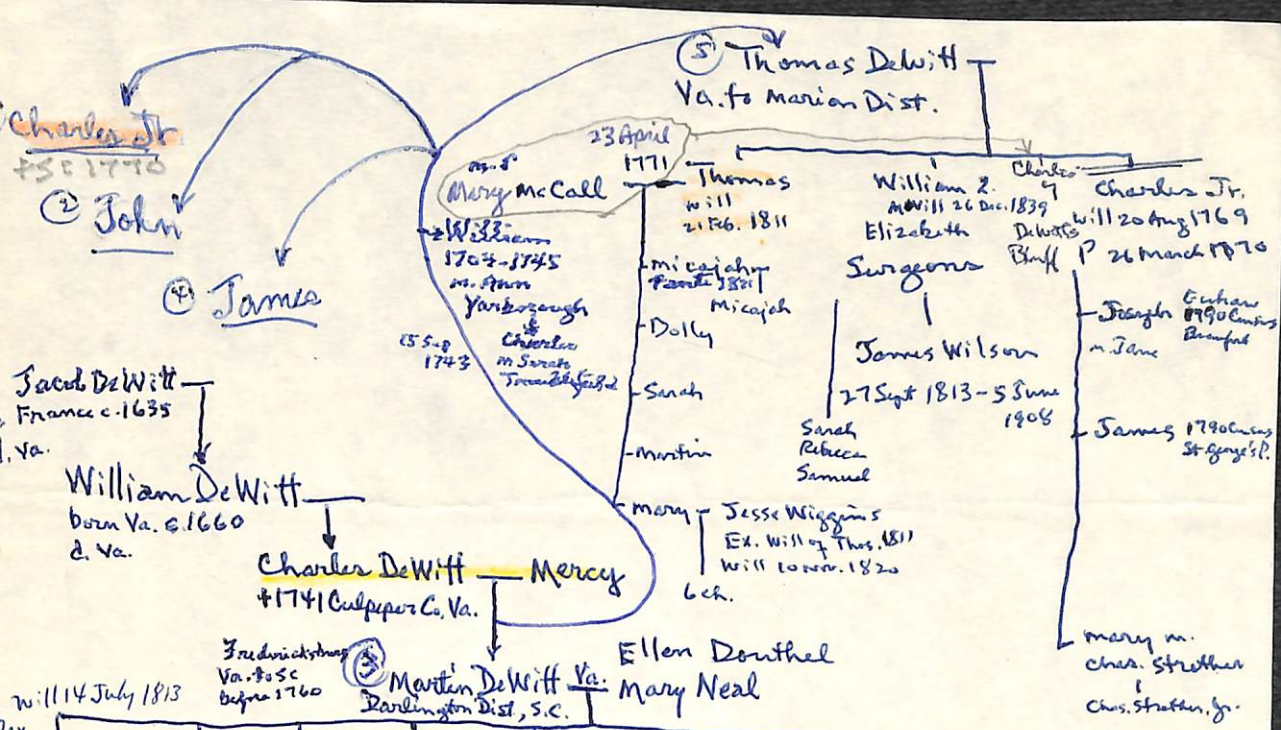 ⑤ Thomas DeWitt
Va. to Marion Dist.
Charles Jr
+SC 1770
② John
④ James
23 April
1771
m. 5
Mary McCall
Thomas
Will
21 Feb. 1811
William
1704-1745
m. Ann
Yarborough
&
Charles
m Sarah
1743
Micajah
1821
Micajah
Dolly
Sarah
Martin
Mary - Jesse Wiggins
Ex. Will of Thos. 1811
Will 10 Nov. 1820
6 ch.
William
Will 26 Dec. 1839
Elizabeth
Surgeons
James Wilson
27 Sept 1813 - 5 June
1908
Sarah
Rebecca
Samuel
Charles
DeWitts
Bluff
Charles Jr.
Will 20 Aug 1769
P 26 March 1770
Joseph
m. Jane
Euhaw
1790 Census
Beaufort
James
1790 Census
St. George's P.
Mary m.
Chas. Strother
Chas. Strother, Jr.
Jacob DeWitt
France c. 1635
d. Va.
William DeWitt
born Va. c. 1660
d. Va.
Charles DeWitt — Mercy
+1741 Culpeper Co, Va.
Fredericksburg
Va. to SC
before 1760
③ Martin DeWitt Va.
Darlington Dist, S.C.
Ellen Douthel
Mary Neal
Will 14 July 1813